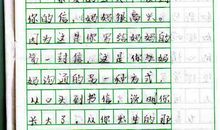 你的信，妈妈很高兴。
因为这是你写给妈妈的
第一封信，这是你与妈
妈沟通的另一种方式，
从口头到书信，说明你
长大了，从你出生的那